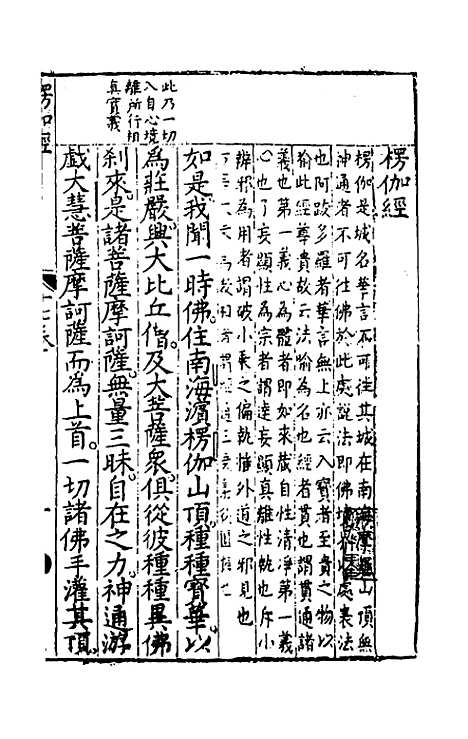 楞伽經
楞伽是城名華言不可往其城在南海摩羅山頂無
神通者不可往佛於此處說法即佛境界處表法
也阿跋多羅者華言無上亦云入寶者至貴之物以
喻此經尊貴故云法喻為名也經者貫也謂貫通諸
義也第一義心為體者即如來藏自性清淨第一義
心也了妄顯性為宗者謂達妄顯真離性執也斥小
辨邪為用者謂破小乘之偏執悟外道之邪見也
如是我聞一時佛住南海濱楞伽山頂種種寶華以
為莊嚴與大比丘僧及大菩薩衆俱從彼種種異佛
刹來是諸菩薩摩訶薩無量三昧自在之力神通游
戲大慧菩薩摩訶薩而為上首一切諸佛手灌其頂
此乃一切
入自心境
離所行相
真實義
楞伽經